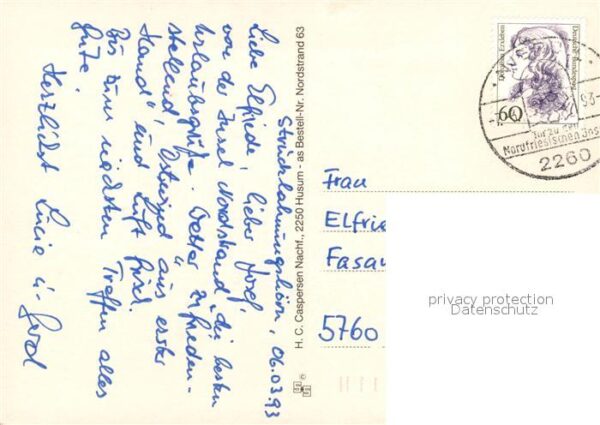 Strucklahnungshörn, 06.03.93
Liebe Elfriede, lieber Josef,
von der Insel Nordstrand die besten
Urlaubsgrüße. Wetter zufrieden-
stellend, Ostwind "aus erster
Hand" und Luft frisch.
Bis zum nächsten Treffen alles
Gute!
Herzlichst Lucie u.
H. C. Caspersen Nachf., 2250 Husum - as Bestell-Nr. Nordstrand 63
Dorothea Erxleben
Deutsche Bundespost
60
93-
Nordfriesischen Ins
2260
Frau
Elfrie
Fasan
5760
privacy protection
Datenschutz